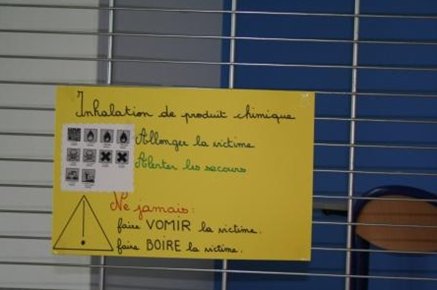 Inhalation de produit chimique
Allonger la victime
Alerter les secours
Ne jamais:
faire VOMIR la victime.
faire BOIRE la victime.